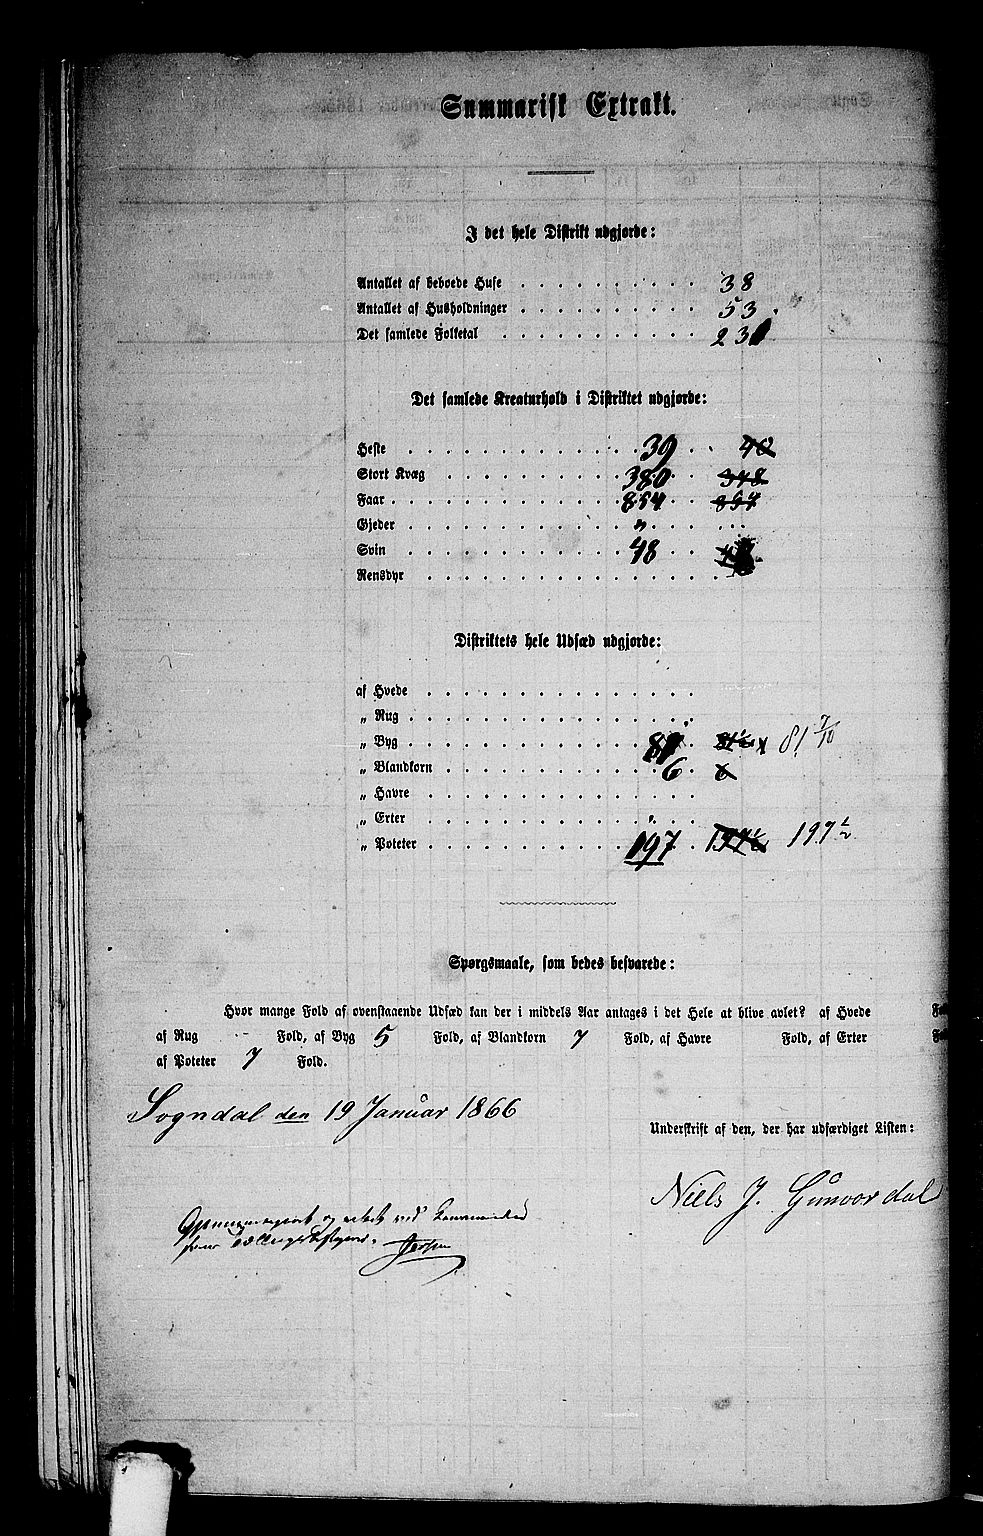 Summarisk Extrakt.
I det hele Distrikt udgjorde:
Antallet af beboede Huse . . . . . . . 38
Antallet af Husholdninger . . . . . . . 53.
Det samlede Folketal . . . . . . . . 231
Det samlede Kreaturhold i Distriktet udgjorde:
Heste . . . . . . . . . 39 . . 40
Stort Kvæg . . . . . . . 380 . . 348
Faar . . . . . . . . . 854 . . 857
Gjeder . . . . . . . . . „ . . . . .
Svin . . . . . . . . . 48 . .
Rensdyr . . . . . . . . . . . .
Distriktets hele Udsæd udgjorde:
af Hvede . . . . . . . . . . .
„ Rug . . . . . . . . . . . .
„ Byg . . . . . . . . . 81 81 7/10
„ Blandkorn . . . . . . . . . 6 6
„ Havre . . . . . . . . . . .
„ Erter . . . . . . . . . „ . .
„ Poteter . . . . . . . . 197 197½ 197½
Spørgsmaale, som bedes besvarede:
Hvor mange Fold af ovenstaaende Udsæd kan der i middels Aar antages i det Hele at blive avlet? af Hvede
af Rug Fold, af Byg 5 Fold, af Blandkorn 7 Fold, af Havre Fold, af Erter
af Poteter 7 Fold.
Sogndal den 19 Januar 1866
Underskrift af den, der har udfærdiget Listen:
Niels J. Gunvordal
og ved